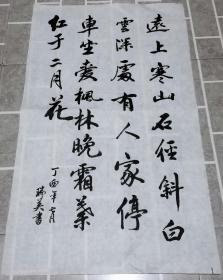 遠上寒山石徑斜白
雲深處有人家停
車坐愛楓林晚霜葉
红于二月花
丁酉年七月
瑞英書